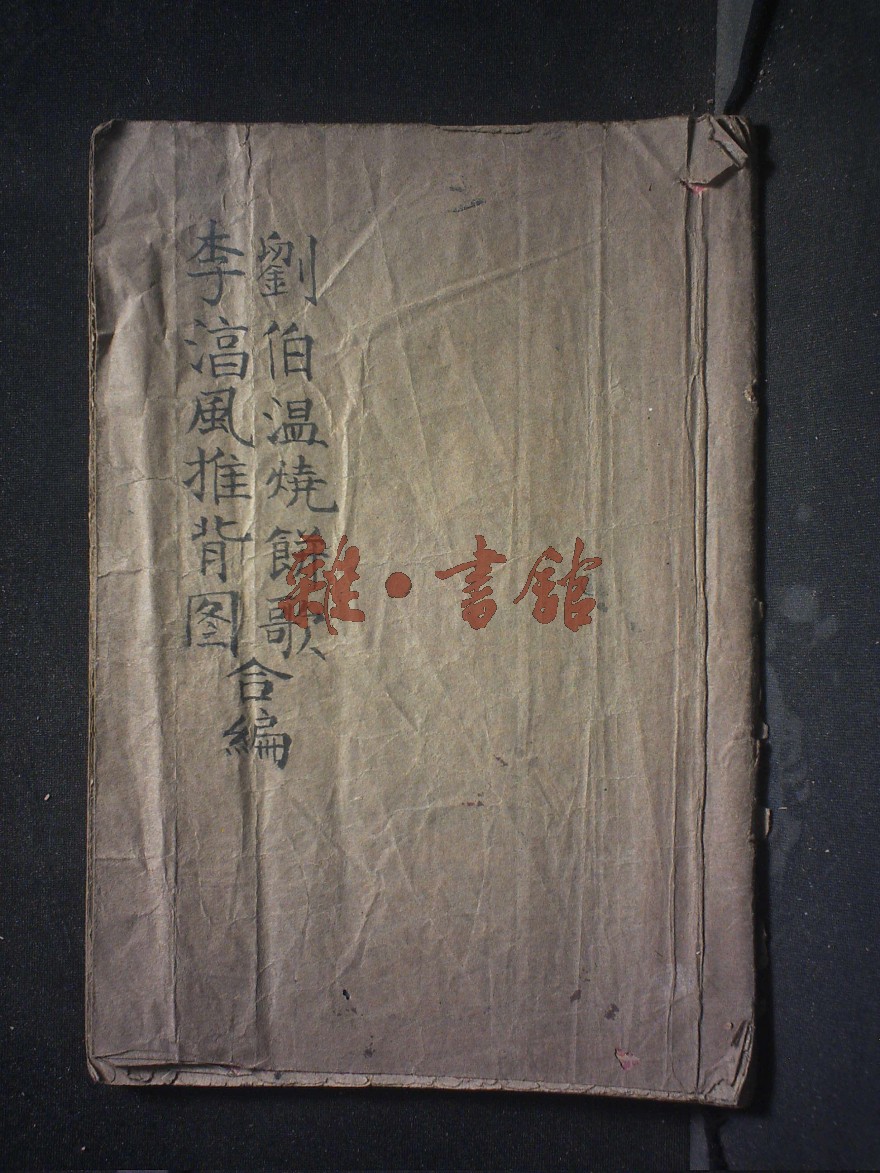 劉伯温燒餅歌
李淳風推背图
合編
雜·書館